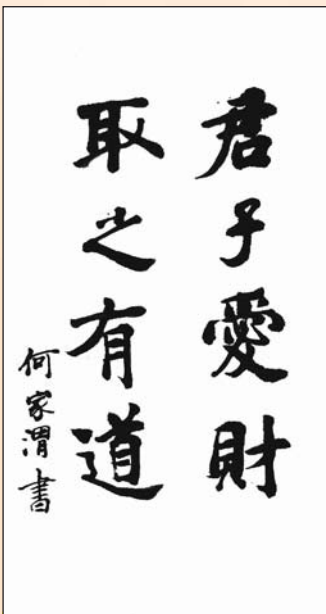 君子愛財
取之有道
何家渭書